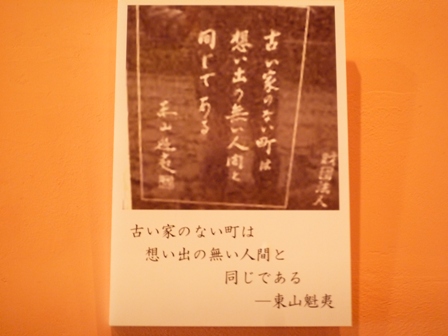 古い家のない町は
想い出の無い人間と
同じである
東山魁夷
財団法人
古い家のない町は
想い出の無い人間と
同じである
―東山魁夷